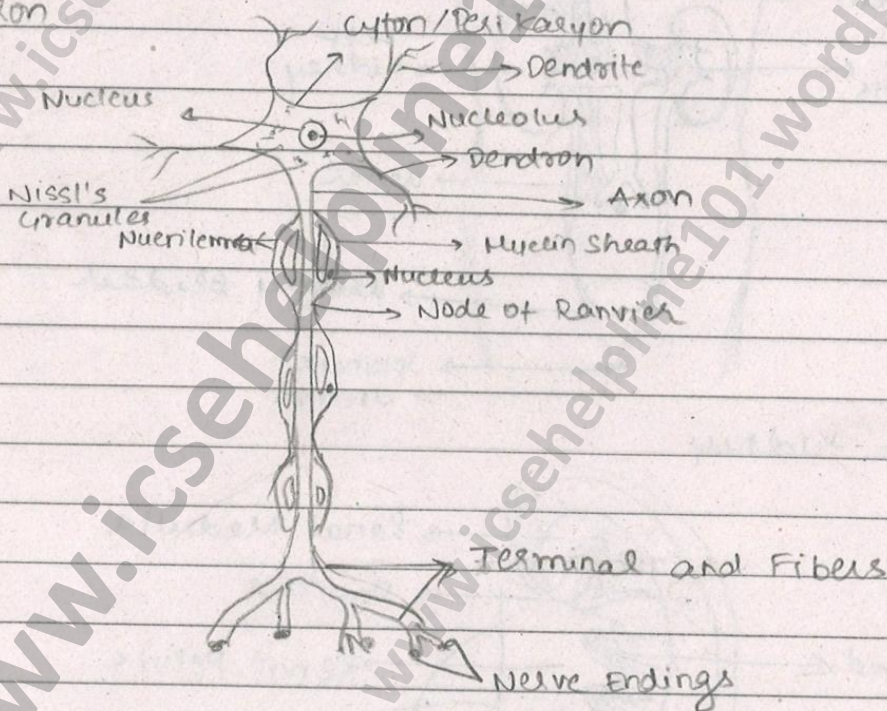 on
Cyton/Perikaryon
Dendrite
Nucleus
Nucleolus
Dendron
Nissl's
Granules
Axon
Nuerilemma
Myelin Sheath
Nucleus
Node of Ranvier
Terminal and Fibers
Nerve Endings
www.icsehelpline101.wordp
www.icsehelpline101.wordp
w.icse